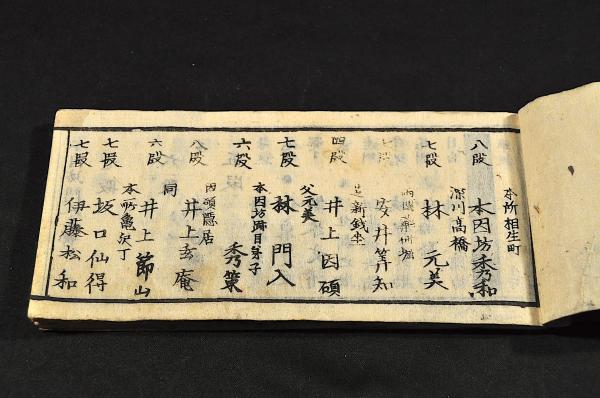 本所相生町
八段 本因坊秀和
深川高橋
七段 林 元美
七段 安井算知
芝新銭坐
四段 井上因碩
父元美
七段 林 門入
本因坊跡目弟子
六段 秀策
因碩隠居
八段 井上玄庵
同
六段 井上節山
本所亀沢丁
七段 坂口仙得
七段 伊藤松和